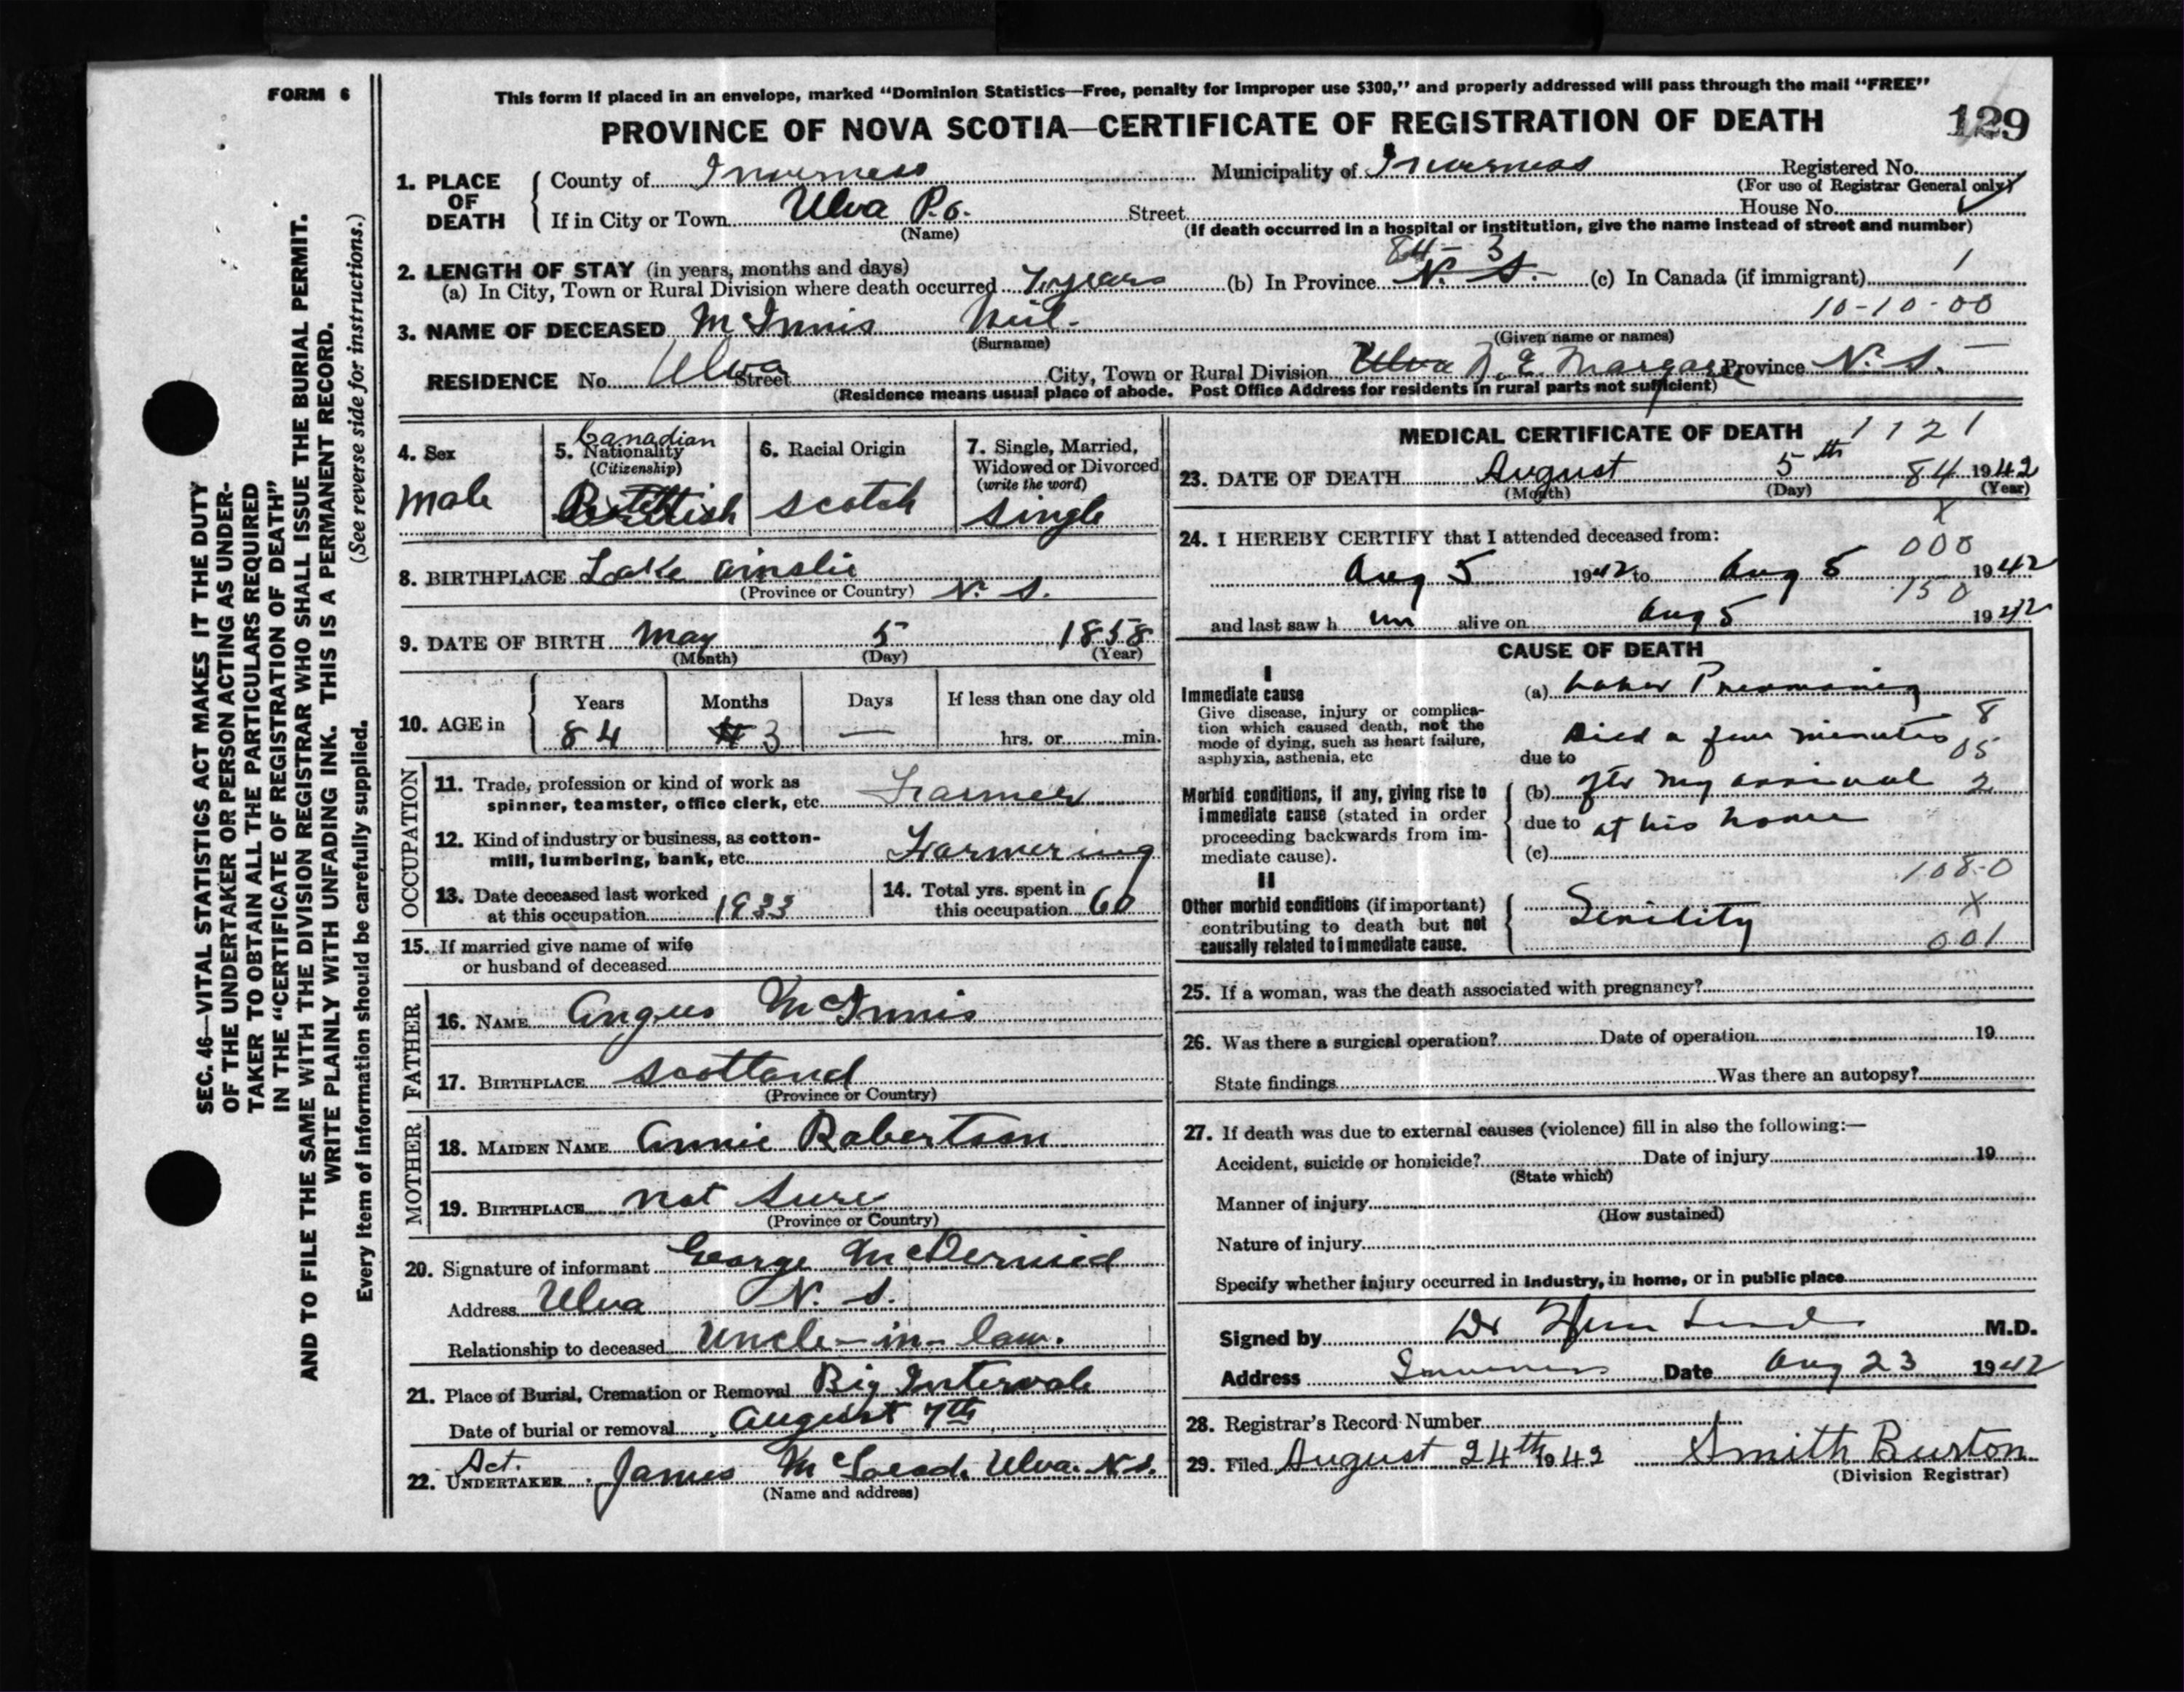 FORM 6
This form if placed in an envelope, marked "Dominion Statistics—Free, penalty for improper use $300," and properly addressed will pass through the mail "FREE"
PROVINCE OF NOVA SCOTIA—CERTIFICATE OF REGISTRATION OF DEATH
129
SEC. 46—VITAL STATISTICS ACT MAKES IT THE DUTY
OF THE UNDERTAKER OR PERSON ACTING AS UNDER-
TAKER TO OBTAIN ALL THE PARTICULARS REQUIRED
IN THE "CERTIFICATE OF REGISTRATION OF DEATH"
AND TO FILE THE SAME WITH THE DIVISION REGISTRAR WHO SHALL ISSUE THE BURIAL PERMIT.
WRITE PLAINLY WITH UNFADING INK. THIS IS A PERMANENT RECORD.
Every item of information should be carefully supplied. (See reverse side for instructions.)
1. PLACE OF DEATH
County of Inverness Municipality of Inverness Registered No.
(For use of Registrar General only)
If in City or Town Ulva P.O. Street House No.
(Name) (If death occurred in a hospital or institution, give the name instead of street and number)
84 - 3
2. LENGTH OF STAY (in years, months and days)
(a) In City, Town or Rural Division where death occurred 7 years (b) In Province N. S. (c) In Canada (if immigrant) 1
10-10-00
3. NAME OF DECEASED McInnis Neil
(Surname) (Given name or names)
RESIDENCE No. Ulva Street City, Town or Rural Division Ulva N. E. Margaree Province N. S.
(Residence means usual place of abode. Post Office Address for residents in rural parts not sufficient)
4. Sex
Male
5. Nationality
Canadian
(Citizenship)
6. Racial Origin
Scotch
7. Single, Married,
Widowed or Divorced
(write the word)
Single
8. BIRTHPLACE Lake Ainslie
(Province or Country) N. S.
9. DATE OF BIRTH May 5 1858
(Month) (Day) (Year)
10. AGE in Years Months Days If less than one day old
84 3 — hrs. or min.
OCCUPATION
11. Trade, profession or kind of work as
spinner, teamster, office clerk, etc. Farmer
12. Kind of industry or business, as cotton-
mill, lumbering, bank, etc. Farmering
13. Date deceased last worked
at this occupation 1933
14. Total yrs. spent in
this occupation 60
15. If married give name of wife
or husband of deceased
FATHER
16. NAME Angus McInnis
17. BIRTHPLACE Scotland
(Province or Country)
MOTHER
18. MAIDEN NAME Annie Robertson
19. BIRTHPLACE not sure
(Province or Country)
20. Signature of informant George McDermid
Address Ulva N. S.
Relationship to deceased Uncle-in-law.
21. Place of Burial, Cremation or Removal Big Intervale
Date of burial or removal August 7th
Act.
22. UNDERTAKER James McLeod. Ulva. N.S.
(Name and address)
MEDICAL CERTIFICATE OF DEATH 1121
23. DATE OF DEATH August 5th 84 1942
(Month) (Day) (Year)
X
24. I HEREBY CERTIFY that I attended deceased from:
000
Aug 5 1942 to Aug 5 1942
150
and last saw h im alive on Aug 5 1942
CAUSE OF DEATH
I
Immediate cause
Give disease, injury or complica-
tion which caused death, not the
mode of dying, such as heart failure,
asphyxia, asthenia, etc
(a) Lobar Pneumonia
8
due to Died a few minutes
05
Morbid conditions, if any, giving rise to
immediate cause (stated in order
proceeding backwards from im-
mediate cause).
(b) after my arrival 2
due to at his home
(c)
108-0
II
Other morbid conditions (if important)
contributing to death but not
causally related to immediate cause.
Senility
X
001
25. If a woman, was the death associated with pregnancy?
26. Was there a surgical operation? Date of operation 19
State findings Was there an autopsy?
27. If death was due to external causes (violence) fill in also the following:—
Accident, suicide or homicide? Date of injury 19
(State which)
Manner of injury
(How sustained)
Nature of injury
Specify whether injury occurred in industry, in home, or in public place
Signed by Dr M.D.
Address Inverness Date Aug 23 1942
28. Registrar's Record Number
29. Filed August 24th 1942 Smith Burton
(Division Registrar)